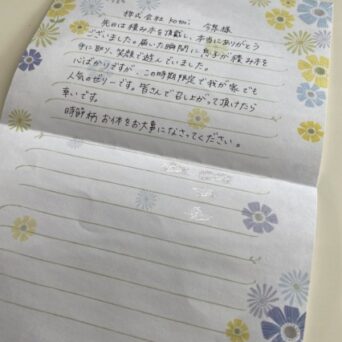 株式会社 kotoi 今泉様
先日は積み木を頂戴し、本当にありがとう
ございました。届いた瞬間に息子が積み木を
手に取り、笑顔で遊んでいました。
心ばかりですが、この時期限定で我が家でも
人気のゼリーです。皆さんで召し上がって頂けたら
幸いです。
時節柄 お体をお大事になさってください。